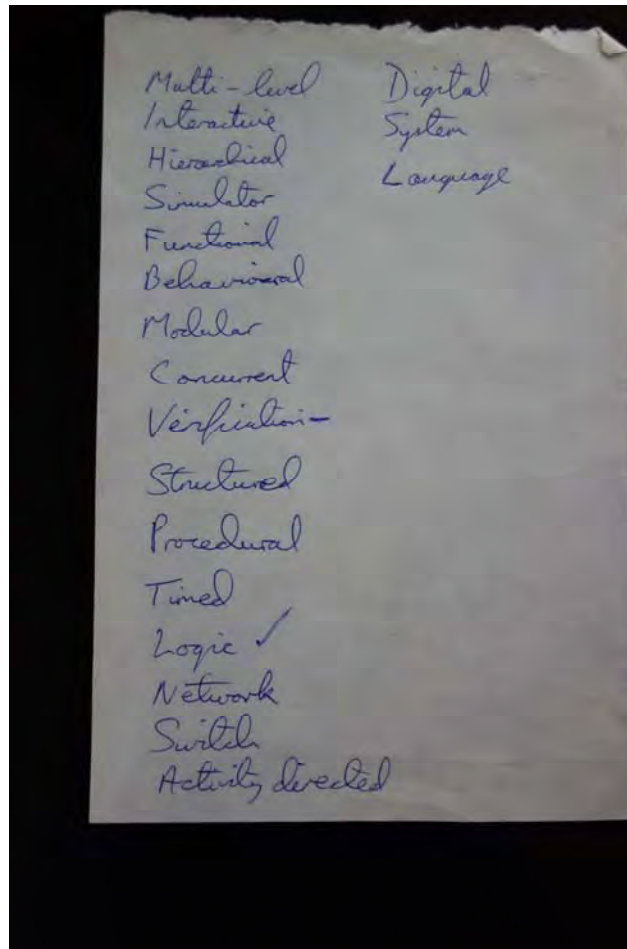 Multi-level
Interactive
Hierarchical
Simulator
Functional
Behavioral
Modular
Concurrent
Verification-
Structured
Procedural
Timed
Logic ✓
Network
Switch
Activity directed
Digital
System
Language